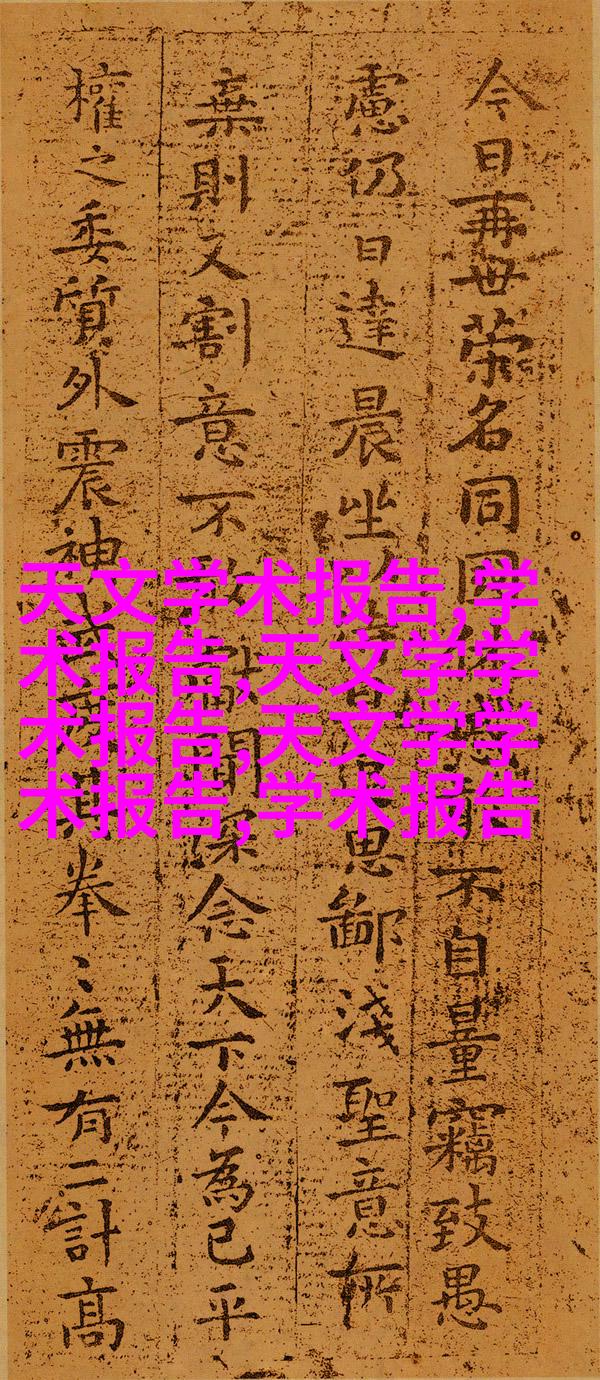 今日再世荣名同國不自量竊致愚
慮仍日達晨坐思鄙淺聖意所
棄則又割意不聞深念天下今為已平
權之委質外震神拳〻無有二計高
天文学术报告,学
术报告,天文学学
术报告,天文学学
术报告,学术报告